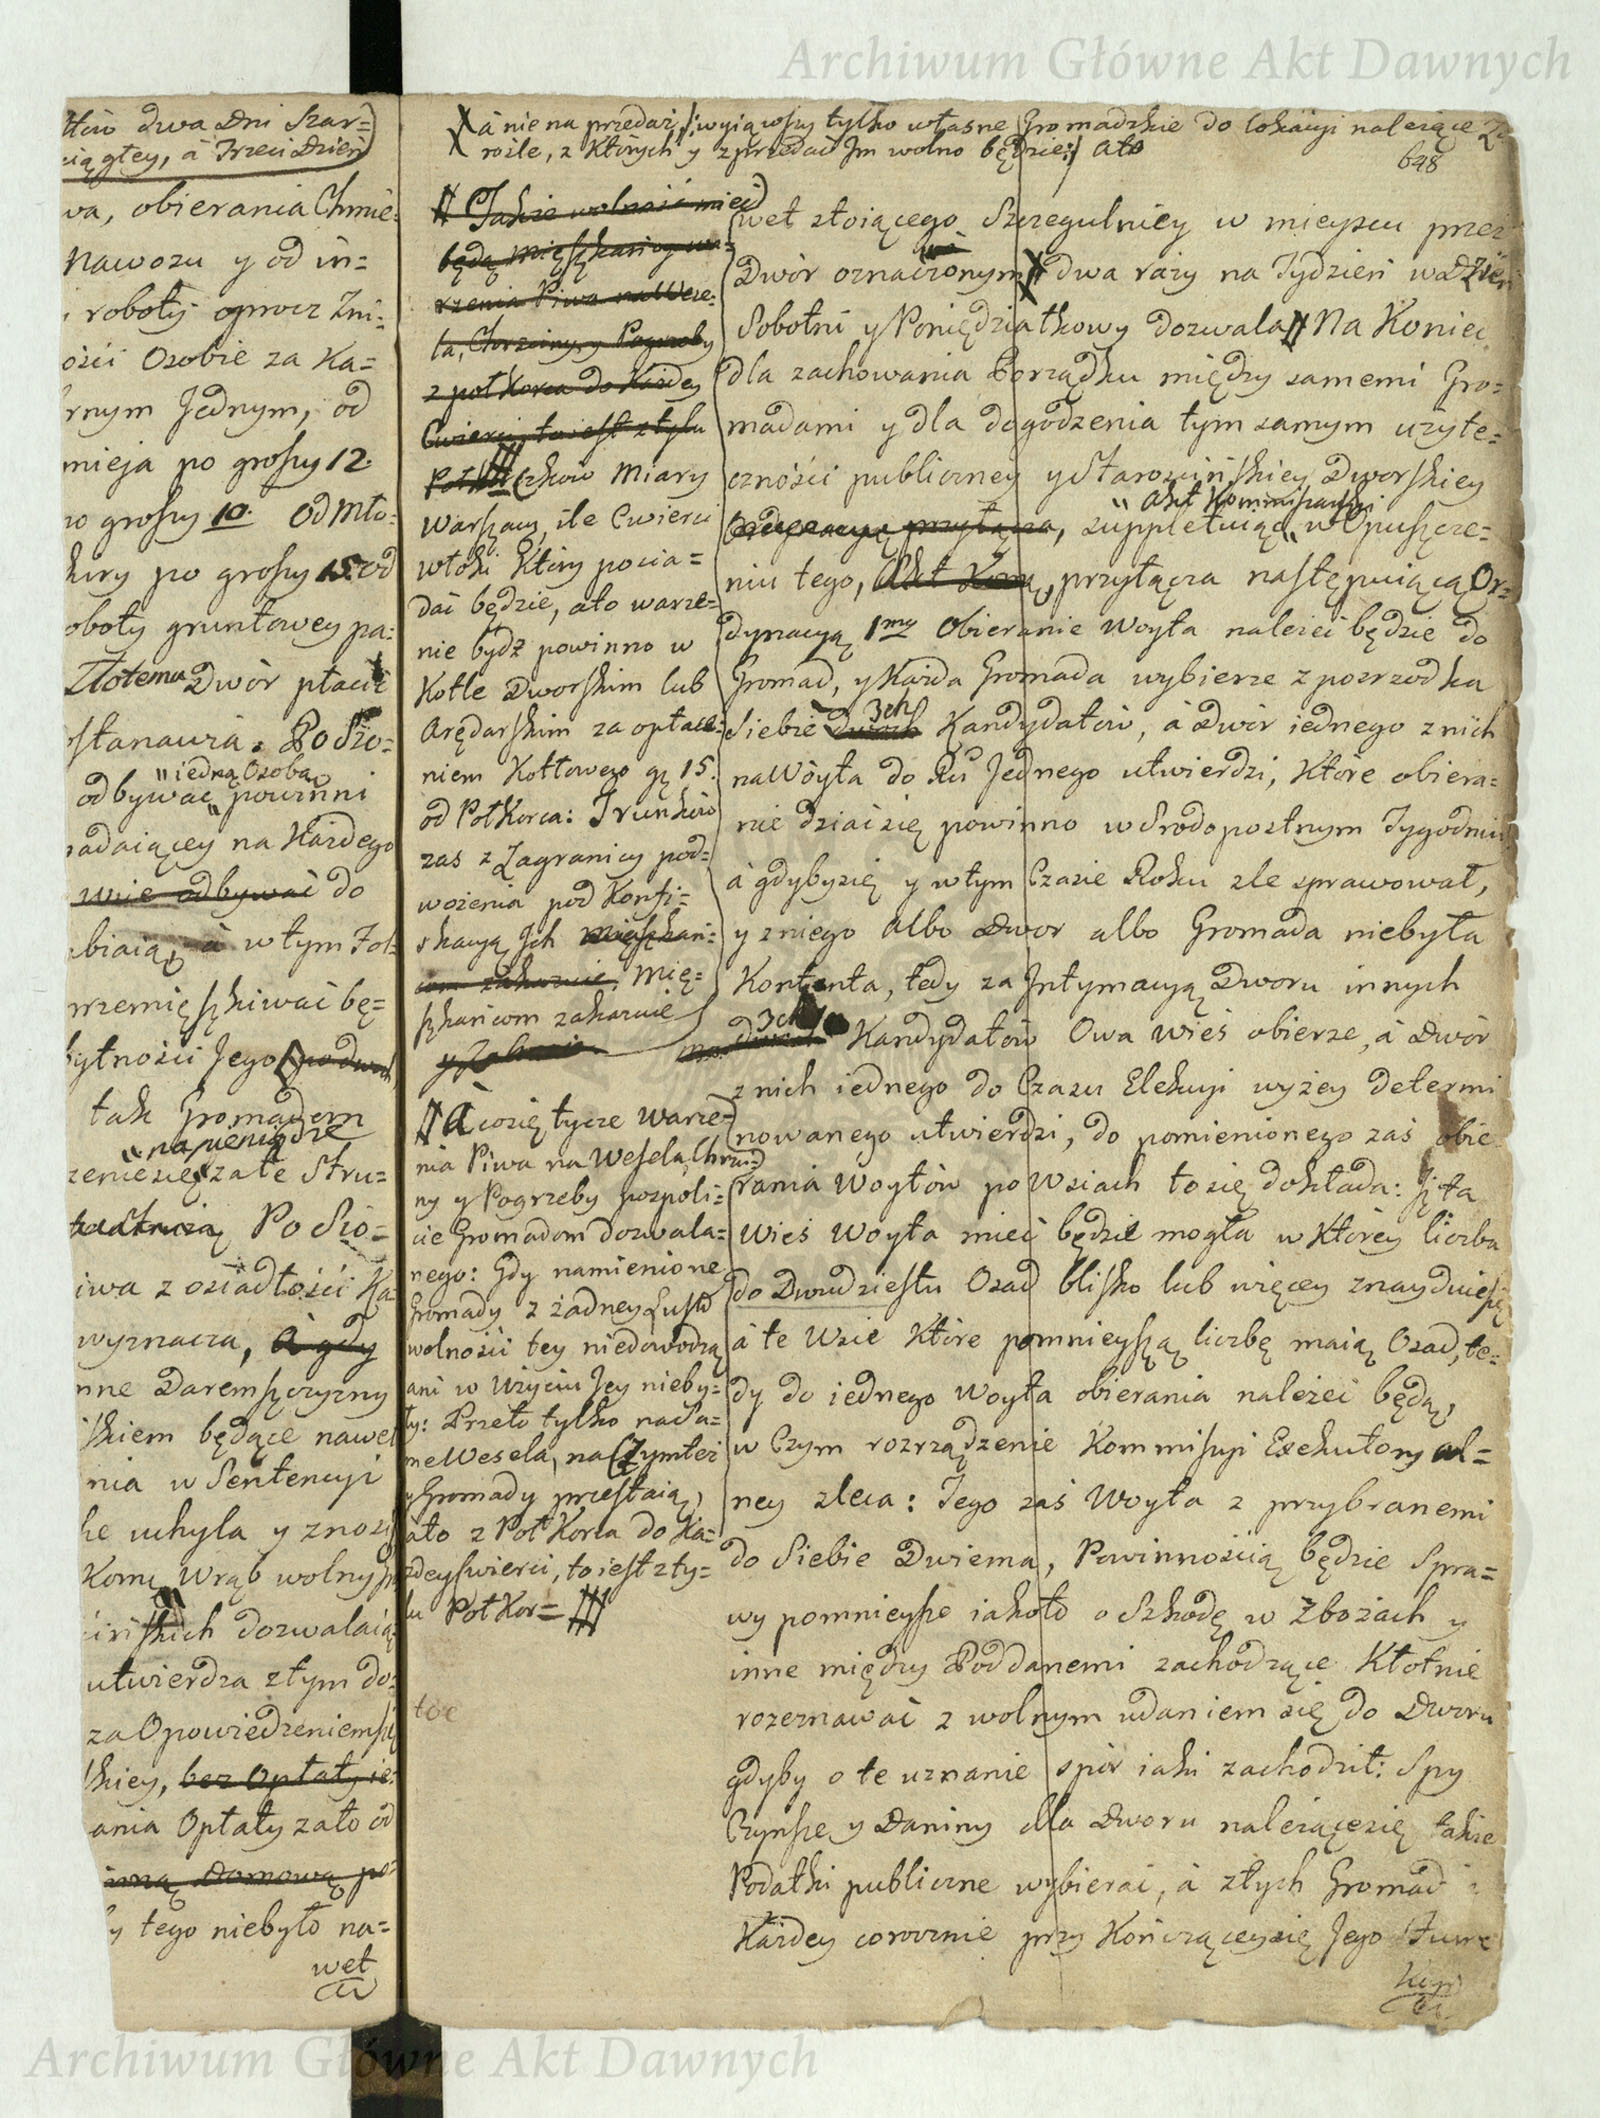 Archiwum Główne Akt Dawnych
dwa Dni Szar=
ciągłey, á Trzeci Dzień
wa, obierania Chmie=
Nawozu y od in=
roboty oprocz Żni=
ości Osobie za Ka=
rnym Jednym, od
mieja po groszy 12.
po groszy 10. Od Mło=
po groszy 15. od
oboty gruntowey pa=
Złotemu Dwór płacić
stanawia. Po Sio=
"iedną Osobą
odbywać powinni
padaiącey na Każdego
wnie odbywać do
ubiaią, á w tym Fol=
przemięszkiwać bę=
bytności Jego
tak Gromadom
"na pieniądze
zeniesię za te Stru=
Po Sio=
iwa z osiadłości Ka=
wyznacza, á gdy
nne Daremszczyzny
skiem będące nawet
nia w Sentencyi
he uchyla y znosi
Komu Wrąb wolny
dozwalaią=
utwierdza z tym do=
za Opowiedzeniem się
skiey, bez Opłaty ie=
ania Opłaty za to od
inną Domową po=
y tego niebyło na=
wet
á nie na przedaż, /:wyiąwszy tylko własne Gromadzkie do lokacyi należące
rośle, z których y zprzedać Im wolno będzie:/ á to
648
Także wolność mieć
będą Mięszkańcy wa=
rzenia Piwa na Wese=
la, Chrzciny, y Pogrzeby
z poł Korca do Każdey
Cwierci, to iest z tylu
Poł czkow Miary
Warszaw: ile Cwierci
włoki Który posia=
dać będzie, á to warze=
nie bydź powinno w
Kotle Dworskim lub
Arędarskim za opłace=
niem Kotłowego gę 15.
od Poł Korca: Trunków
zas z Zagranicy pod=
wożenia pod Konfi=
skacyą Jch Mięszkań=
com zakazuie, Mię=
szkańcom zakazuie
á cosię tycze warze=
nia Piwa na Wesela, Chrzci=
ny y Pogrzeby pospoli=
cie Gromadom dozwala=
nego: Gdy namienione
Gromady z żadney Lustr
wolności tey niedowodzą
ani w Użyciu Jey nieby=
ły: Przeto tylko na sa=
me Wesela, na Czymteż
y Gromady przestaią,
á to z Poł Korca do Ka=
zdey cwierci, to iest z ty=
lu Poł Kor=
wet stoiącego Szczegulniey w mieyscu przez
Dwór oznaczonym dwa razy na Tydzień w Dzień
Sobotni y Poniedziałkowy dozwala Na Koniec
dla zachowania Porządku między samemi Gro=
madami y dla dogodzenia tym samym użyte=
czności publiczney y Starościńskiey Dworskiey
" Akt Kommissarski
Ordynacyę przyłącza, suppletuiąc " w Opuszcze=
niu tego, Akt Kom, przyłącza następuiącą Or=
dynacyą 1mo Obieranie Woyta należeć będzie do
Gromad, y Każda Gromada wybierze z pośrzodka
3ch
Siebie dwóch Kandydatów, á Dwór iednego z nich
na Wóyta do Ru Jednego utwierdzi, Które obiera=
nie dziać się powinno w Srodopostnym Tygodniu
á gdybysię y w tym Czasie Roku zle sprawował,
y z niego albo Dwor albo Gromada niebyła
Kontenta, tedy za Jntymacyą Dworu innych
3ch
Kandydatów Owa wieś obierze, á Dwór
z nich iednego do Czasu Elekcyi wyżey determi
nowanego utwierdzi, do pomienionego zaś obie
rania Woytów po Wsiach to się dokłada: Jż ta
Wieś Woyta mieć będzie mogła w Którey liczba
do Dwudziestu Osad blisko lub więcey znayduie się
á te Wsie Które pomnieyszą liczbę maią Osad, te=
dy do iednego Woyta obierania należeć będą,
w Czym rozrządzenie Kommissyi Exekutoryal=
ney zleca: Tego zaś Woyta z przybranemi
do Siebie Dwiema, Powinnością będzie Spra=
wy pomnieysze iakoto o Szkodę w Zbożach y
inne między Poddanemi zachodzące Kłotnie
rozeznawać z wolnym udaniem się do Dworu
gdyby o te uznanie spór iaki zachodził: Spy
Czynsze y Daniny dla Dworu należącesię także
Podatki publiczne wybierać, á z tych Gromad
Każdey corocznie przy Kończącey się Jego Funk
kcyi
Archiwum Główne Akt Dawnych